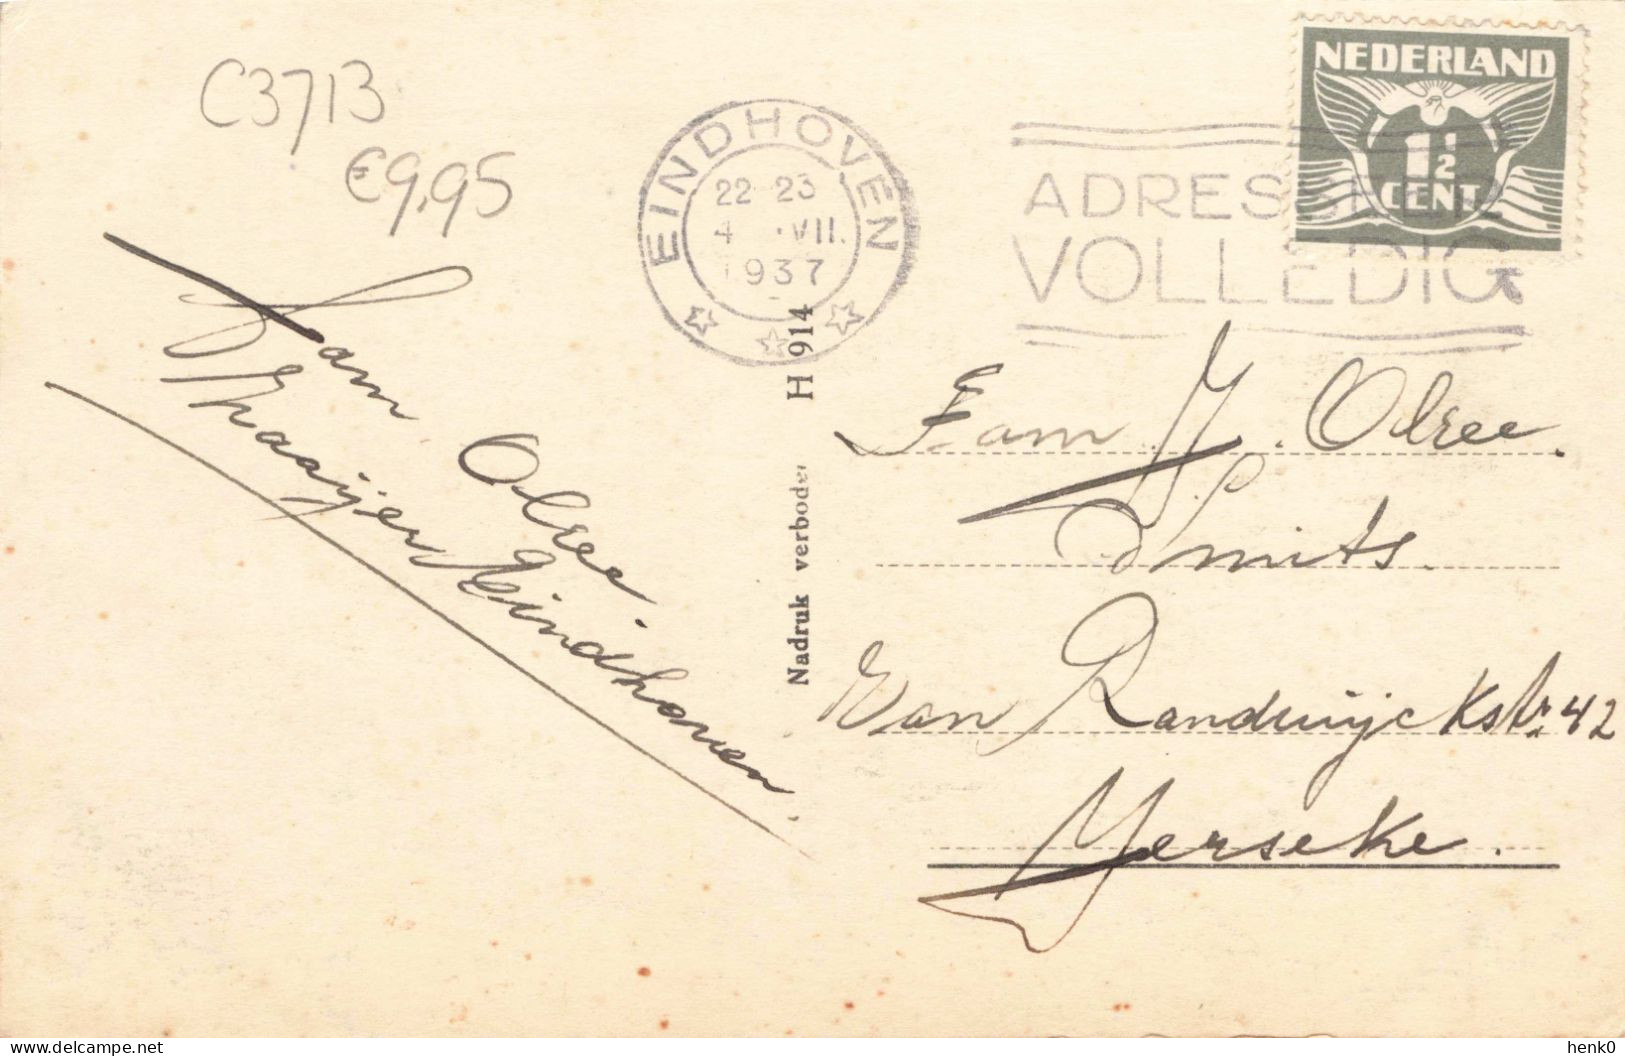 C3713
€9,95
EINDHOVEN
22-23
4 .VII.
1937
ADRESSEER
VOLLEDIG
NEDERLAND
1½
CENT
Fam Olree
Kraaijer Eindhoven.
Nadruk verboden H 914
Fam Y. Olree.
Smits.
Van Randwijckstr. 42
Yerseke.
henk0